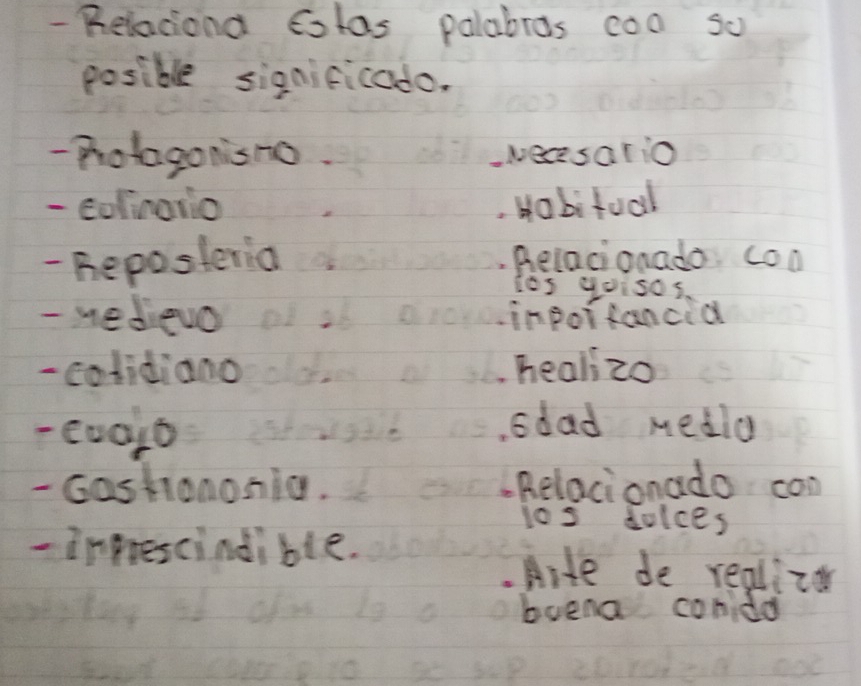 - Relaciona Estas palabras con su
posible significado.
- Protagonismo. .Necesario
- culinario . .Habitual
- Repostería . .Relacionado con
los guisos.
- medievo . .importancia
- cotidiano . .Realizo
- cuajo .Edad Media
- Gastronomia. .Relacionado con
los dulces
- imprescindible.
.Arte de realizar
buena comida